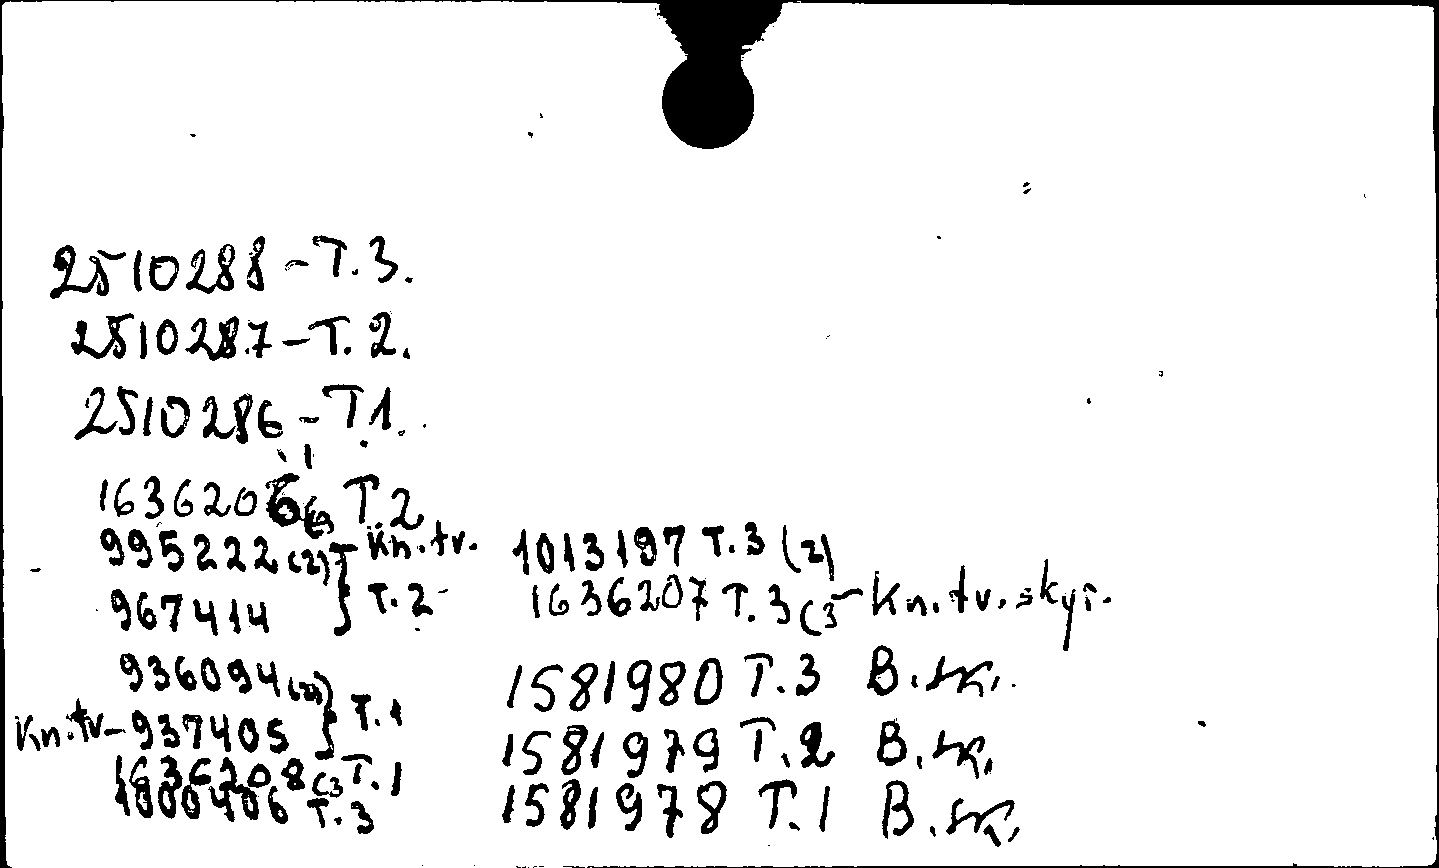 2510288 - T. 3.
2510287 - T. 2.
2510286 - T 1.
1636206 T 2
995222 (2) Kn. tv.
967414 } T. 2
936094 (2)
Kn. tv - 937405 } T. 1
1636208 (3 T. 1
1000406 T. 3
1013197 T. 3 (2)
1636207 T. 3 (3 - Kn. tv. skyr.
1581980 T. 3 B. sk.
1581979 T. 2 B. sk.
1581978 T. 1 B. sk.